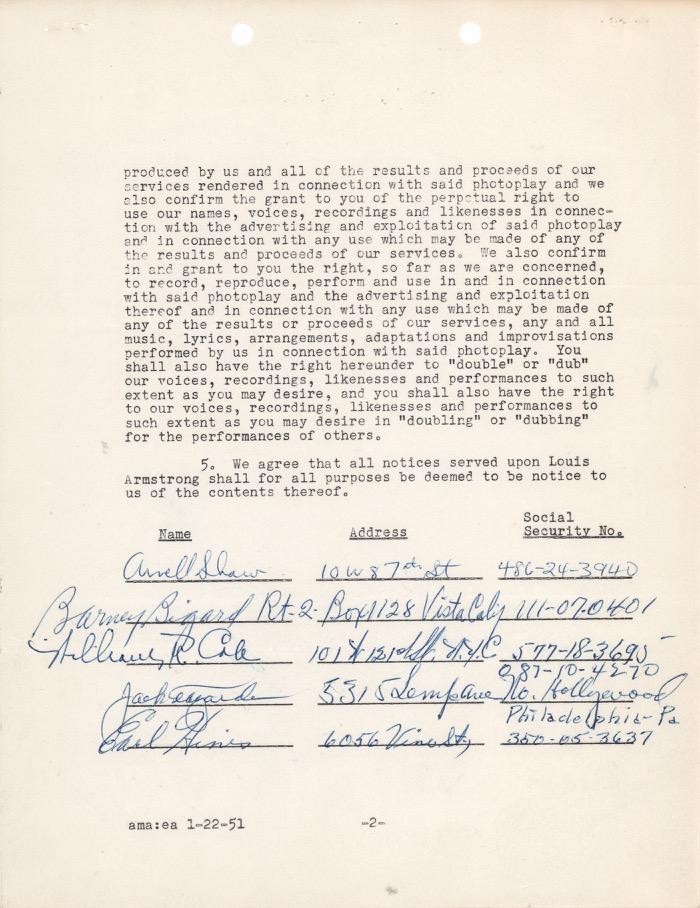 produced by us and all of the results and proceeds of our
services rendered in connection with said photoplay and we
also confirm the grant to you of the perpetual right to
use our names, voices, recordings and likenesses in connec-
tion with the advertising and exploitation of said photoplay
and in connection with any use which may be made of any of
the results and proceeds of our services. We also confirm
in and grant to you the right, so far as we are concerned,
to record, reproduce, perform and use in and in connection
with said photoplay and the advertising and exploitation
thereof and in connection with any use which may be made of
any of the results or proceeds of our services, any and all
music, lyrics, arrangements, adaptations and improvisations
performed by us in connection with said photoplay. You
shall also have the right hereunder to "double" or "dub"
our voices, recordings, likenesses and performances to such
extent as you may desire, and you shall also have the right
to our voices, recordings, likenesses and performances to
such extent as you may desire in "doubling" or "dubbing"
for the performances of others.
5. We agree that all notices served upon Louis
Armstrong shall for all purposes be deemed to be notice to
us of the contents thereof.
Name Address Social Security No.
Arvell Shaw 10 W 87th St 486-24-3940
Barney Bigard Rt-2- Box 1128 Vista Calif 111-07-0401
William R. Cole 101 W 121st St. N.Y.C 577-18-3695
087-10-4270
Jack Teagarden 5315 Ave No. Hollywood
Philadelphia-Pa
Earl Hines 6056 Vine St, 350-05-3637
ama:ea 1-22-51 -2-